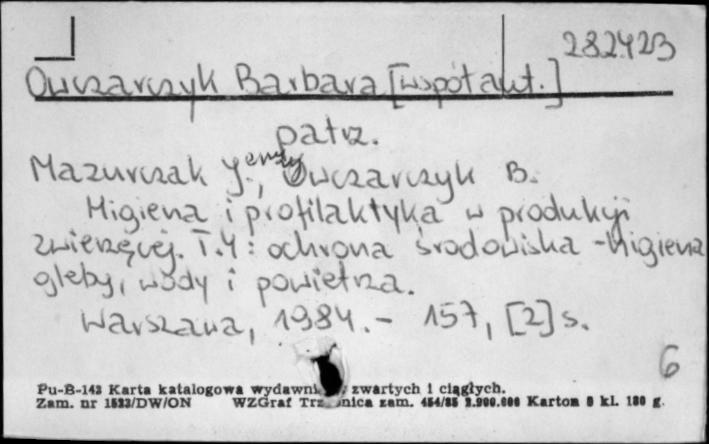 282423
Owczarczyk Barbara [współaut.]
patrz.
Mazurczak Jerzy, Owczarczyk B.
Higiena i profilaktyka w produkcji
zwierzęcej. T.4: ochrona środowiska - higiena
gleby, wody i powietrza.
Warszawa, 1984. - 157, [2] s.
6
Pu-B-143 Karta katalogowa wydawni zwartych i ciągłych.
Zam. nr 1523/DW/ON WZGraf zam. 454/85 2.900.000 Karton kl. 180 g.